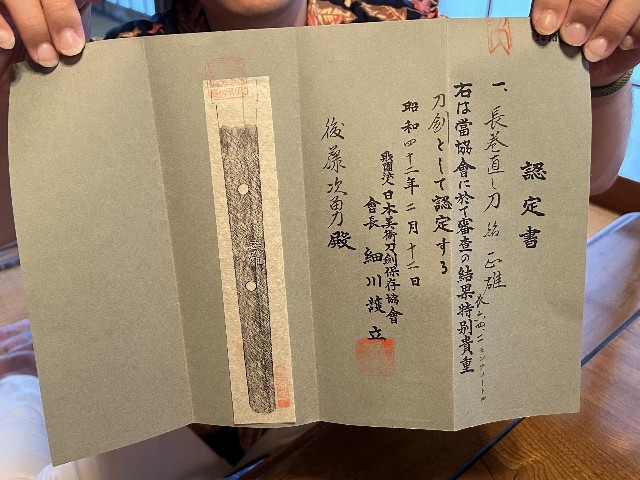 認定書
一、長巻直し刀 銘 正雄
長六四、一センチメートル
右は當協會に於て審査の結果特別貴重
刀剣として認定する
昭和四十二年二月十二日
財團法人日本美術刀剣保存協會
會長 細川護立
後藤次勇殿
正雄